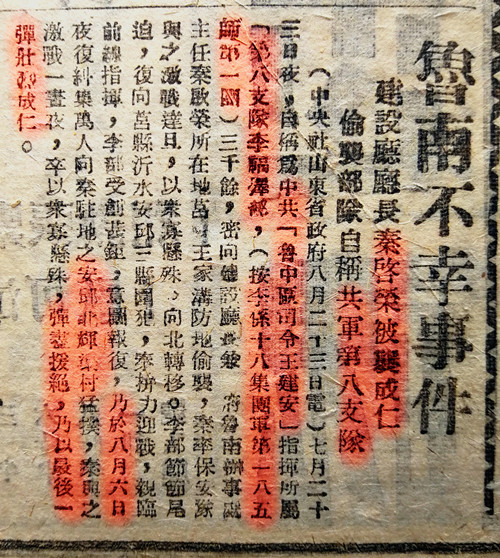 魯南不幸事件
建設廳廳長秦啓榮被襲成仁
偷襲部隊自稱共軍第八支隊
（中央社山東省政府八月二十三日電）七月二十
三日夜，自稱爲中共「魯中區司令王建安」指揮所屬
「第八支隊李福澤部，（按李係十八集團軍第一八五
師第一團）三千餘，密向建設廳長兼府魯南辦事處
主任秦啟榮所在地莒王家溝防地偷襲，秦率保安隊
與之激戰達旦，以衆寡懸殊，向北轉移。李部節節尾
迫，復向莒縣沂水安邱三縣圍犯，秦拚力迎戰，親臨
前線指揮，李部受創甚鉅，意圖報復，乃於八月六日
夜復糾集萬人向秦駐地之安邱北輝渠村猛撲，秦與之
激戰一晝夜，卒以衆寡懸殊，彈盡援絕，乃以最後一
彈壯烈成仁。